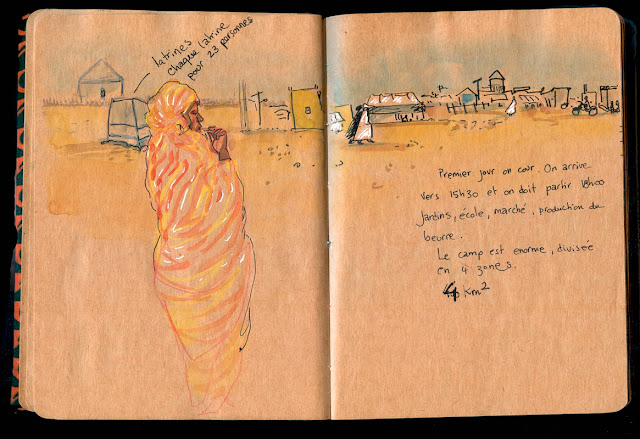 latrines
chaque latrine
pour 23 personnes
Premier jour on cour. On arrive
vers 15h30 et on doit partir 18h00
Jardins, école, marché, production du
beurre.
Le camp est enorme, divisée
en 4 zones.
4 Km²